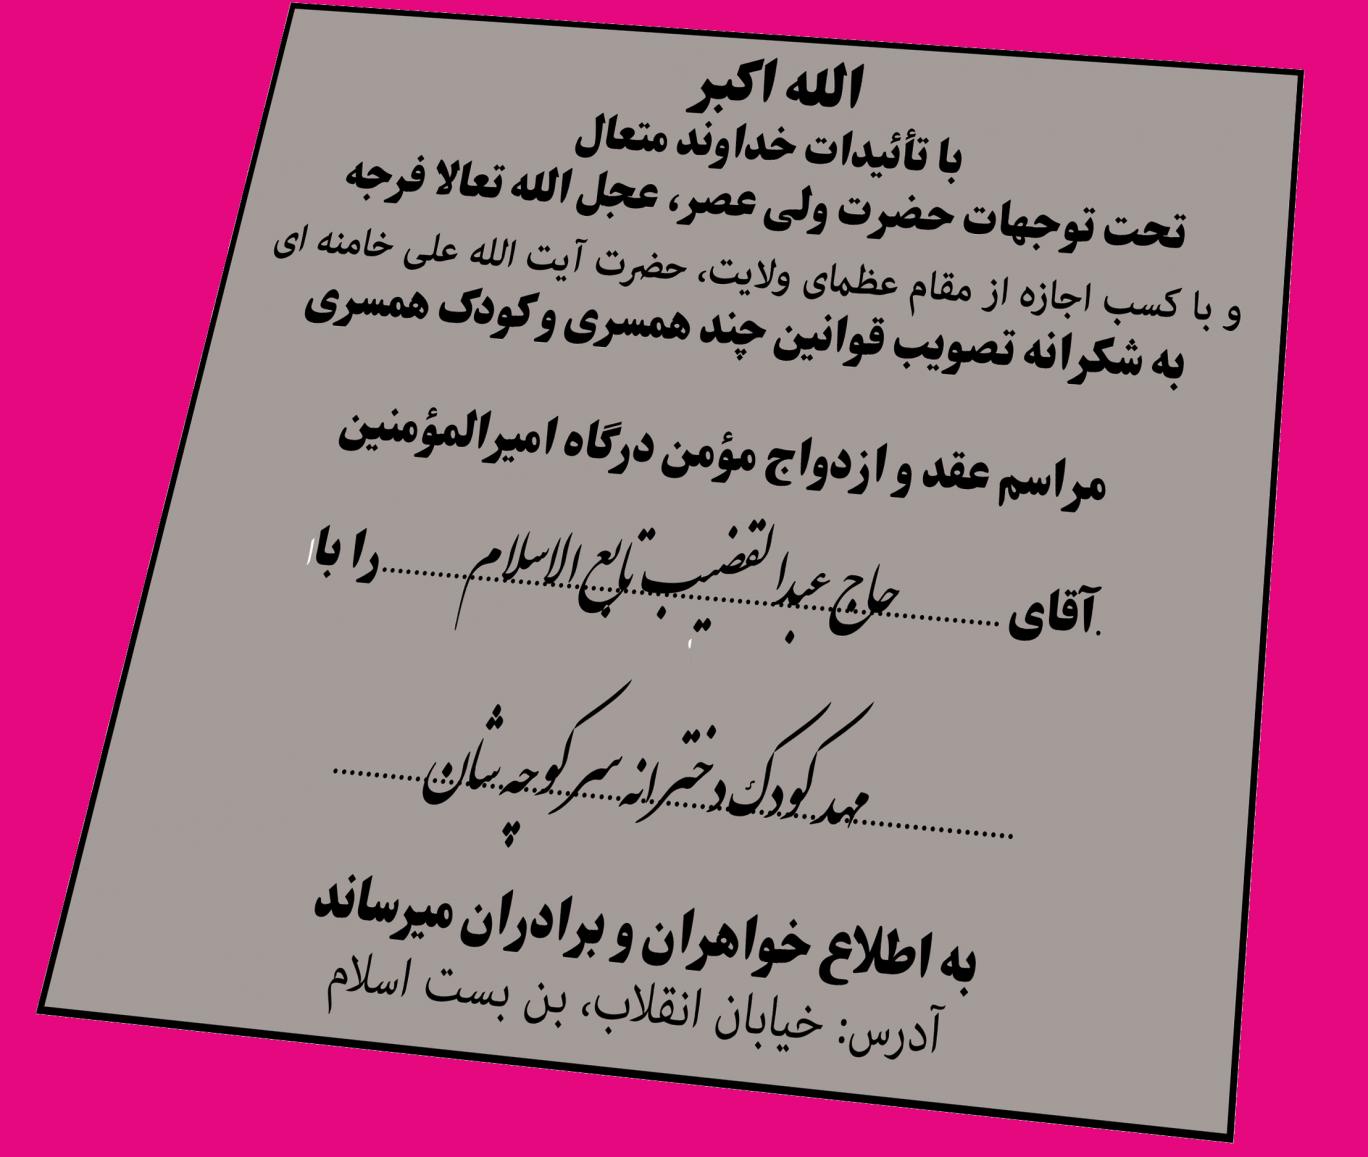 الله اکبر
با تأئیدات خداوند متعال
تحت توجهات حضرت ولی عصر، عجل الله تعالا فرجه
و با کسب اجازه از مقام عظمای ولایت، حضرت آیت الله علی خامنه ای
به شکرانه تصویب قوانین چند همسری و کودک همسری
مراسم عقد و ازدواج مؤمن درگاه امیرالمؤمنین
آقای حاج عبدالقضیب تابع الاسلام را با
مهد کودک دخترانه سر کوچه شان
به اطلاع خواهران و برادران میرساند
آدرس: خیابان انقلاب، بن بست اسلام